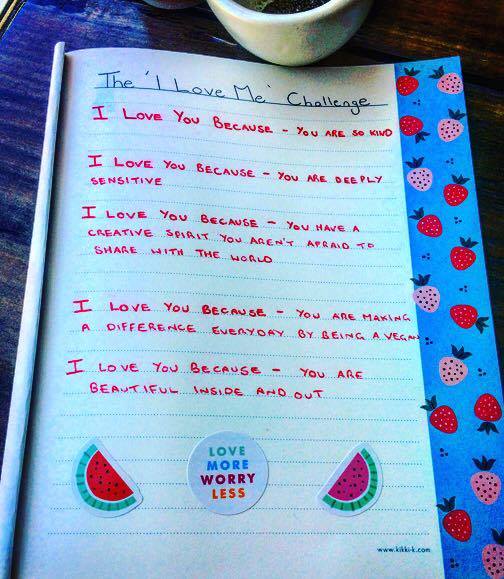 The 'I Love Me' Challenge
I LOVE YOU BECAUSE - YOU ARE SO KIND
I LOVE YOU BECAUSE - YOU ARE DEEPLY
SENSITIVE
I LOVE YOU BECAUSE - YOU HAVE A
CREATIVE SPIRIT YOU AREN'T AFRAID TO
SHARE WITH THE WORLD
I LOVE YOU BECAUSE - YOU ARE MAKING
A DIFFERENCE EVERYDAY BY BEING A VEGAN
I LOVE YOU BECAUSE - YOU ARE
BEAUTIFUL INSIDE AND OUT
LOVE
MORE
WORRY
LESS
www.kikki-k.com